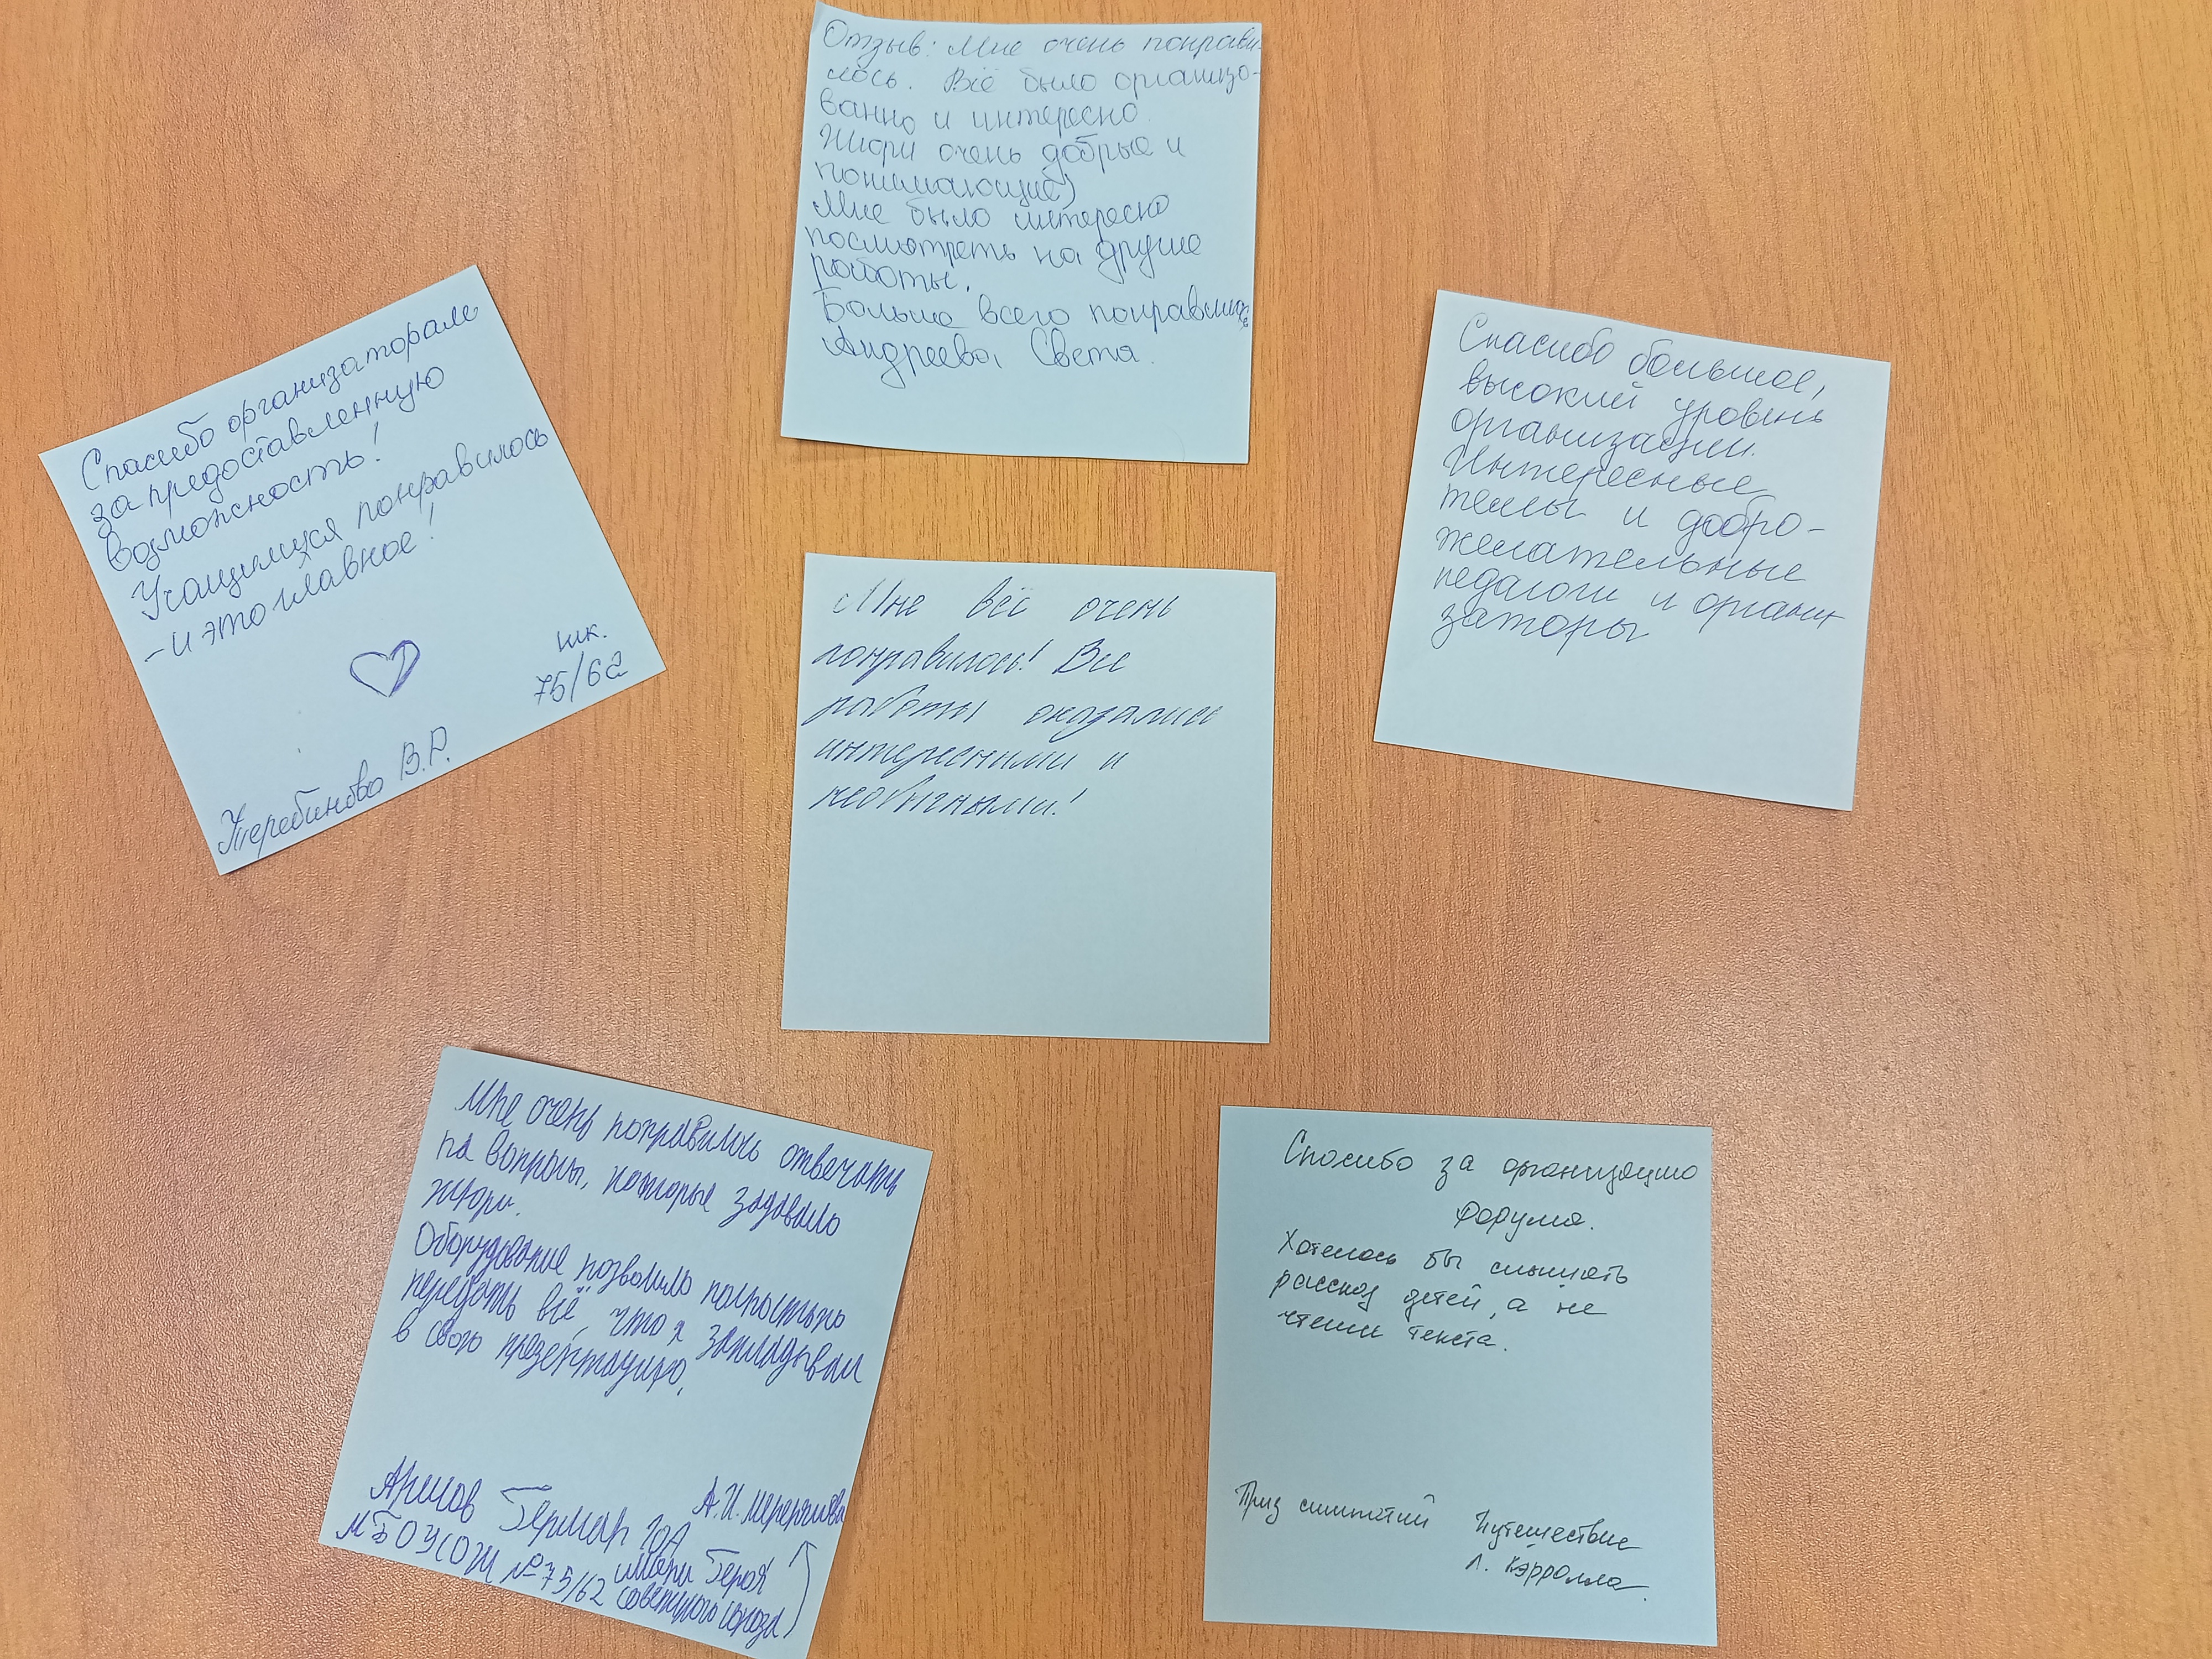 Отзыв: Мне очень понрави-
лось. Всё было организо-
ванно и интересно.
Жюри очень добрые и
понимающие)
Мне было интересно
посмотреть на другие
работы.
Больше всего понравилась
Андреева Света.
Спасибо организаторам
за предоставленную
возможность!
Учащимися понравилось
- и это главное!
шк.
75/62
Жеребинова В.Р.
Спасибо большое,
высокий уровень
организации.
Интересные
темы и добро-
желательные
педагоги и органи
заторы
Мне всё очень
понравилось! Все
работы оказались
интересными и
необычными!
Мне очень понравилось отвечать
на вопросы, которые задавало
жюри.
Оборудование позволило полностью
передать всё, что я закладывал
в свою презентацию.
Герман 10А
МБОУ СОШ №75/62 имени Героя
Советского Союза
А.И.
Спасибо за организацию
форума.
Хотелось бы слышать
рассказ детей, а не
чтение текста.
Приз симпатий Путешествие
Л. Кэрролла.